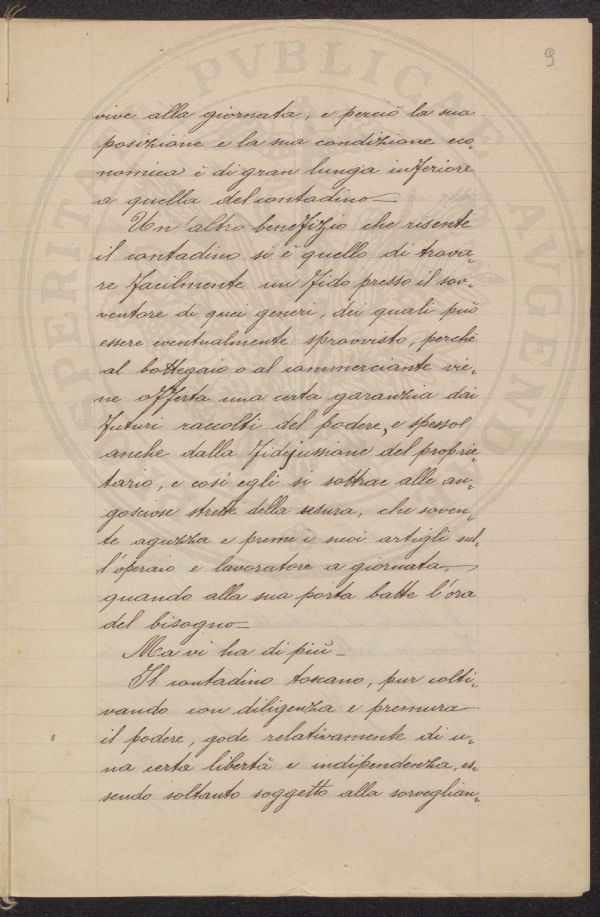 9
vive alla giornata, e perciò la sua
posizione e la sua condizione eco-
nomica è di gran lunga inferiore
a quella del contadino—
Un'altro benefizio che risente
il contadino si è quello di trova-
re facilmente un fido presso il sov-
ventore di quei generi, dei quali può
essere eventualmente sprovvisto, perchè
al bottegaio o al commerciante vie-
ne offerta una certa garanzia dai
futuri raccolti del podere, e spesso
anche dalla fidejussione del proprie-
tario, e così egli si sottrae alle an-
gosciose strette della usura, che soven-
te aguzza e preme i suoi artigli sul-
l'operaio e lavoratore a giornata,
quando alla sua porta batte l'ora
del bisogno—
Ma vi ha di più—
Il contadino toscano, pur colti-
vando con diligenza e premura
il podere, gode relativamente di u-
na certa libertà e indipendenza, es-
sendo soltanto soggetto alla sorveglian-
PVBLICAE AVGEND